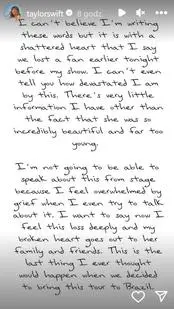 taylorswift 8 godz.
I can't believe I'm writing
these words but it is with a
shattered heart that I say
we lost a fan earlier tonight
before my show. I can't even
tell you how devastated I am
by this. There's very little
information I have other than
the fact that she was so
incredibly beautiful and far too
young.
I'm not going to be able to
speak about this from stage
because I feel overwhelmed by
grief when I even try to talk
about it. I want to say now I
feel this loss deeply and my
broken heart goes out to her
family and friends. This is the
last thing I ever thought
would happen when we decided
to bring this tour to Brazil.